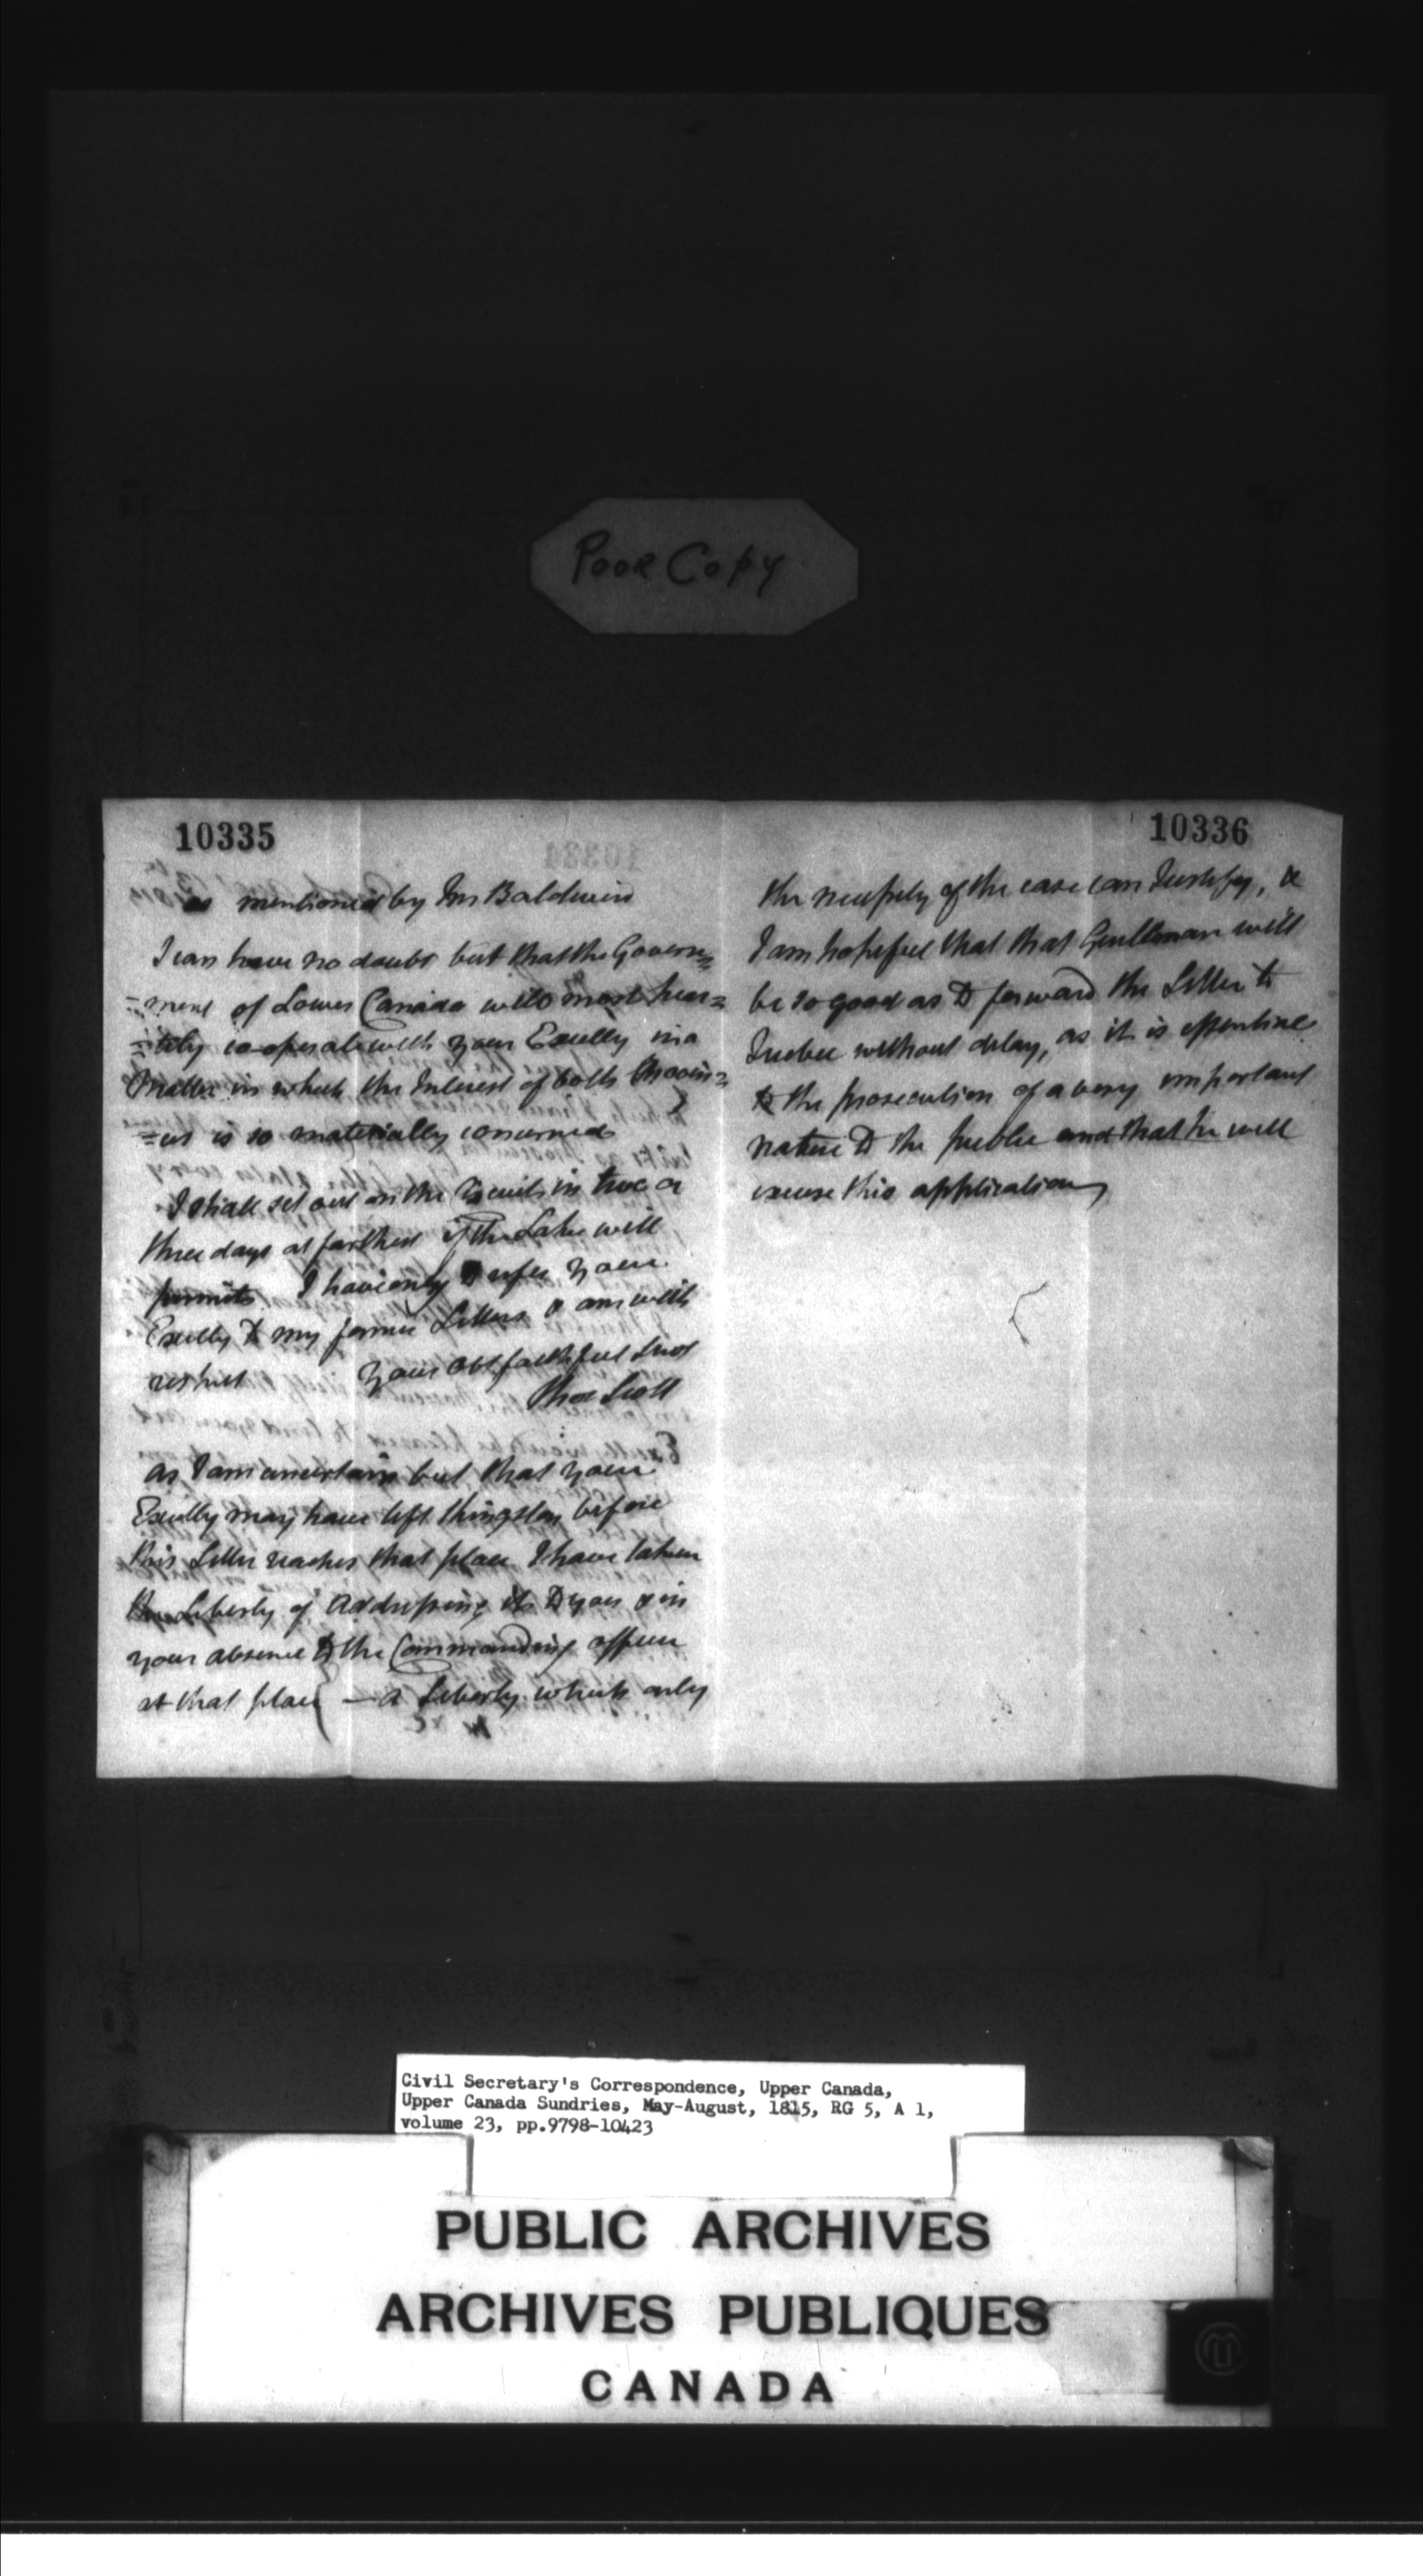 Poor Copy
10335
as mentioned by Mr Baldwin
I can have no doubt but that the Govern=
=ment of Lower Canada will most hear=
=tily co-operate with your Excelly in a
Matter in which the Interest of both Provin=
=ces is so materially concerned
I shall set out on the Circuit in two or
three days at farthest if the Lake will
permit. I have only to refer your
Excelly to my former Letters & am with
respect your obt faithful Servt
Thos Scott
as I am uncertain but that your
Excelly may have left Kingston before
this Letter reaches that place I have taken
the Liberty of Addressing it to you & in
your absence to the Commanding officer
at that place — a Liberty which only
10336
the necessity of the case can Justify, &
I am hopeful that that Gentleman will
be so good as to forward the Letter to
Quebec without delay, as it is essential
to the prosecution of a very important
nature to the public and that he will
excuse this application
Civil Secretary's Correspondence, Upper Canada,
Upper Canada Sundries, May-August, 1815, RG 5, A 1,
volume 23, pp.9798-10423
PUBLIC ARCHIVES
ARCHIVES PUBLIQUES
CANADA